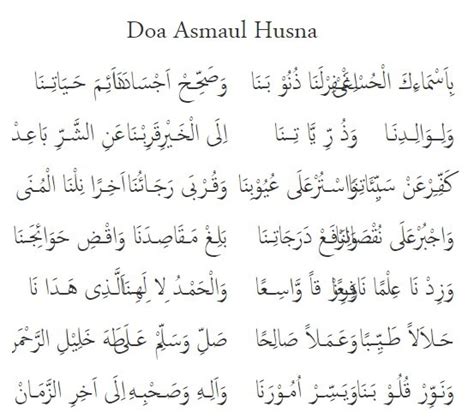 Doa Asmaul Husna
بِاَسْمَاءِكَ الْحُسْنَى اغْفِرْلَنَا ذُنُوْ بَنَا وَصَحِّحْ اَجْسَادَنَا حَيَاتِـنَا
وَلِـوَالِـدِنَـا وَذُ رِّ يَّا تِـنَا اِلَى الْخَيْرِ قَرِّبْنَا عَنِ الشَّـرِّ بَاعِدْ
كَفِّرْ عَنْ سَيِّئَاتِنَا وَاسْتُرْ عَلَى عُيُوْبِنَا وَقُرْبَى رَجَائُنَا اَخِرًا نِلْنَا الْمُنَى
وَاجْبُرْ عَلَى نُقْصَانِنَا وَارْفَعْ دَرَجَاتِـنَا بَلِّغْ مَقَاصِدَنَا وَاقْضِ حَوَائِجَـنَا
وَزِدْ نَا عِلْمًا نَافِعًا وَرِزْ قاً وَّاسِـعًا وَالْحَمْدُ لِاِلٰهِـنَا الَّـذِى هَـدَا نَا
حَـلَالاً طَـيِّـبًا وَعَمَـلاً صَالِحًا صَلِّ وَسَلِّمْ عَلَى طَهَ خَلِيْلِ الرَّحْمَ
وَنَـوِّرْ قُلُـوْ بَنَا وَيَسِّـرْ اُمُـوْرَنَا وَآلِـهِ وَصَحْبِـهِ اِلَى اَخِرِ الزَّمَـانْ